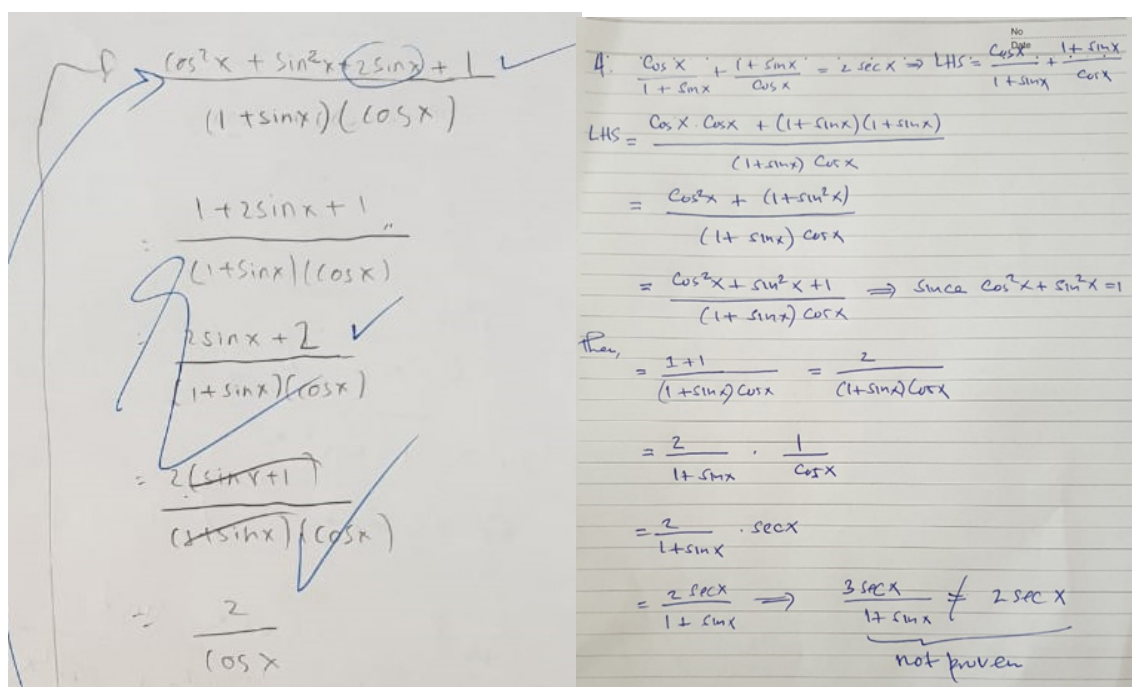 cos²x + sin²x + 2sinx + 1
(1 + sinx)(cosx)
1 + 2sinx + 1
= (1+sinx)(cosx)
= 2sinx + 2
(1+sinx)(cosx)
= 2(sinx+1)
(1+sinx)(cosx)
= 2
cosx
No
Date
4. Cos x / 1 + sinx + (1 + sinx) / Cos x = 2 sec x ⇒ LHS = Cos x / 1 + sinx + 1 + sinx / Cos x
LHS = Cos x . Cos x + (1 + sinx)(1 + sinx)
(1+sinx) Cos x
= Cos²x + (1+sin²x)
(1+ sinx) Cos x
= Cos²x + sin²x +1 ⇒ Since Cos²x + sin²x =1
(1+ sinx) Cos x
Then,
= 1+1 / (1+sinx) Cosx = 2 / (1+sinx) Cosx
= 2 / 1+ sinx . 1 / Cos x
= 2 / 1+sinx . secx
= 2 secx / 1 + sinx ⇒ 3 secx / 1+ sinx ≠ 2 sec x
not proven